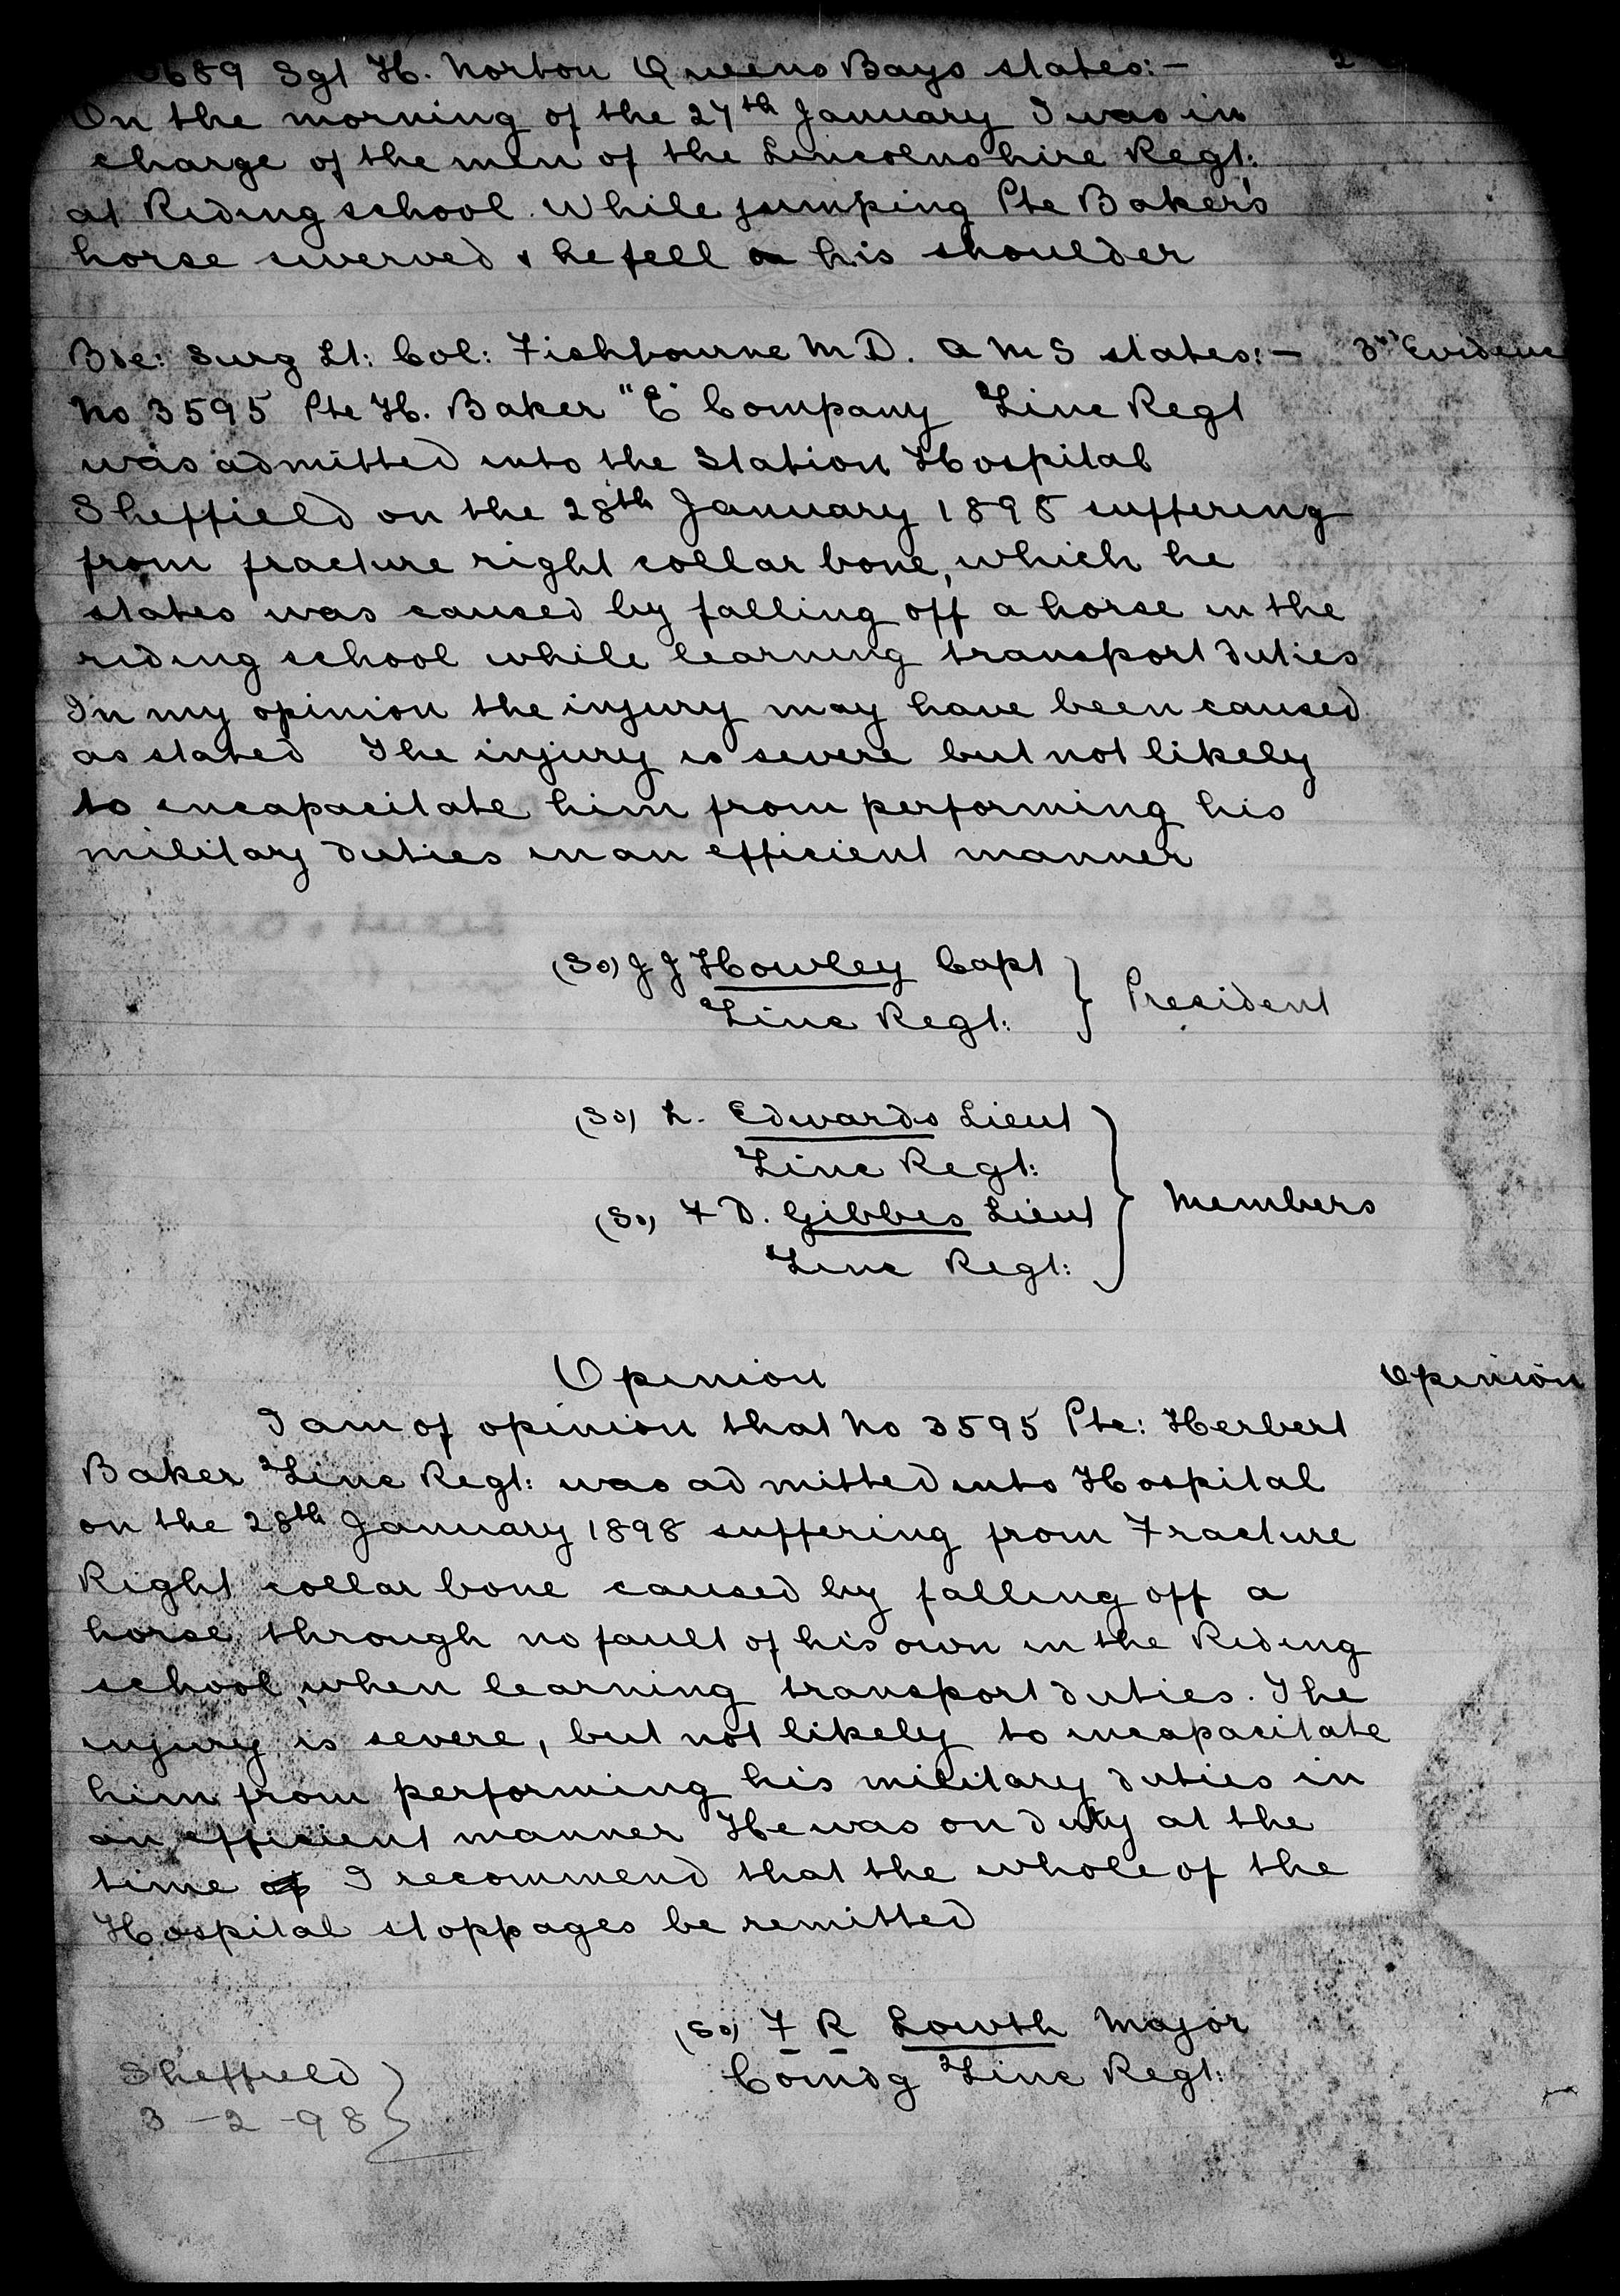 689 Sgt H. Norton Queens Bays states:- 2
On the morning of the 27th January I was in
charge of the men of the Lincolnshire Regt:
at Riding school. While jumping Pte Baker's
horse swerved & he fell on his shoulder
Bde: Surg Lt: Col: Fishbourne M D. A M S states:- 3rd Evidence
No 3595 Pte H. Baker "E" Company Linc Regt
was admitted into the Station Hospital
Sheffield on the 28th January 1898 suffering
from fracture right collar bone, which he
states was caused by falling off a horse in the
riding school while learning transport duties
In my opinion the injury may have been caused
as stated The injury is severe but not likely
to incapacitate him from performing his
military duties in an efficient manner
(Sd) J J Howley Capt
Linc Regt: } President
(Sd) L. Edwards Lieut
Linc Regt:
(Sd) F D. Gibbes Lieut } Members
Linc Regt:
Opinion Opinion
I am of opinion that No 3595 Pte: Herbert
Baker Linc Regt: was admitted into Hospital
on the 28th January 1898 suffering from Fracture
Right collar bone caused by falling off a
horse, through no fault of his own in the Riding
school, when learning transport duties. The
injury is severe, but not likely to incapacitate
him from performing his military duties in
an efficient manner He was on duty at the
time of I recommend that the whole of the
Hospital stoppages be remitted
(Sd) F R Lowth Major
Comdg Linc Regt:
Sheffield }
3-2-98